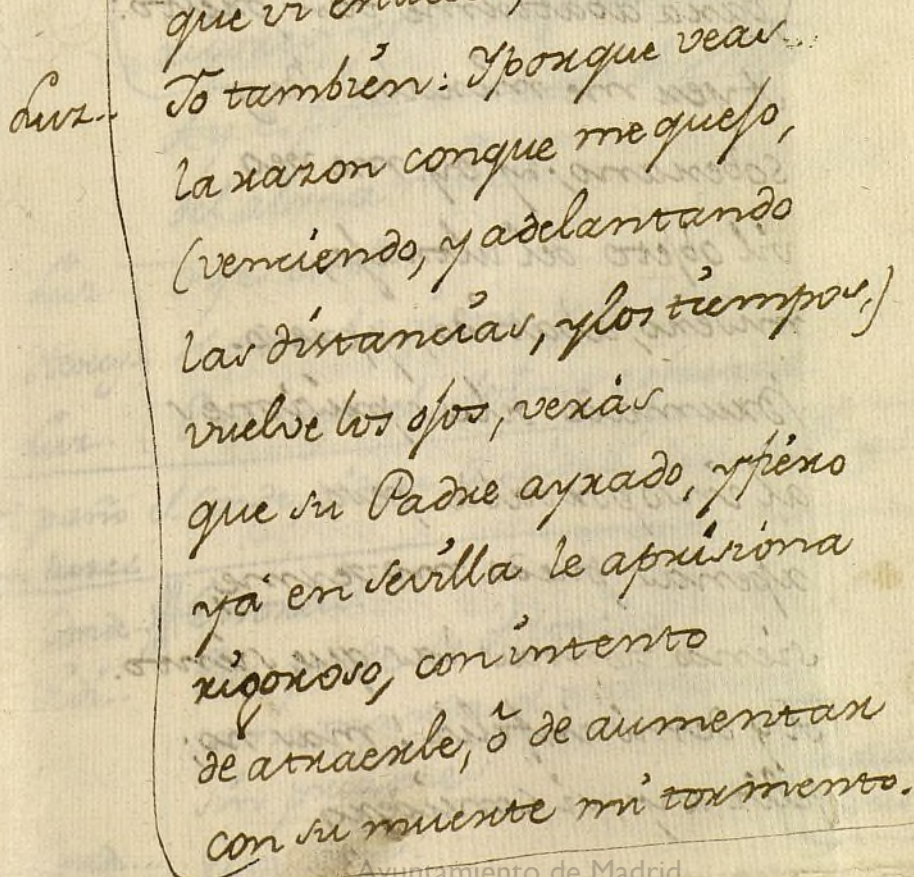 que vi en
Luz.. Yo también: Y porque veas
la razon conque me quejo,
(venciendo, y adelantando
las distancias, y los tiempos,)
vuelve los ojos, verás
que su Padre ayrado, y fiero
yá en Sevilla le aprisiona
rigoroso, con intento
de atraerle, ò de aumentar
con su muerte mi tormento.
Ayuntamiento de Madrid